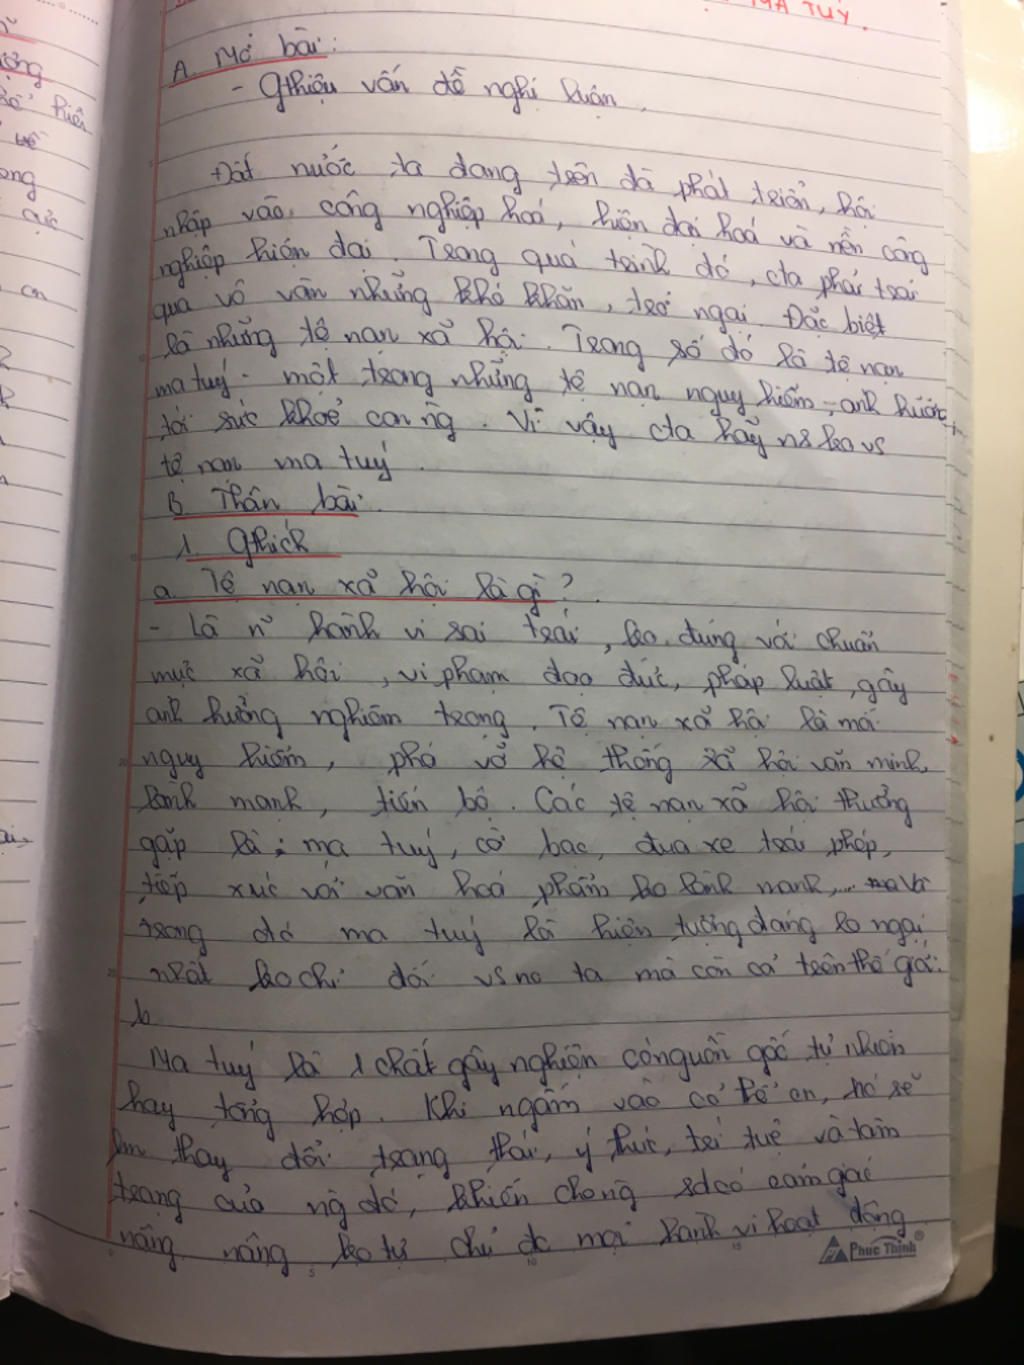 MA TUÝ.
A. Mở bài:
- Gthiệu vấn đề nghị luận.
Đất nước ta đang trên đà phát triển, hội
nhập vào công nghiệp hoá, hiện đại hoá và nền công
nghiệp hiện đại. Trong quá trình đó, cta phải trải
qua vô vàn những khó khăn, trở ngại. Đặc biệt
là những tệ nạn xã hội. Trong số đó là tệ nạn
ma tuý - một trong những tệ nạn nguy hiểm, ảnh hưởng
tới sức khoẻ con ng. Vì vậy cta hãy ns ko vs
tệ nạn ma tuý.
B. Thân bài:
1. Gthích
a. Tệ nạn xã hội là gì?
- Là n~ hành vi sai trái, ko đúng với chuẩn
mực xã hội, vi phạm đạo đức, pháp luật, gây
ảnh hưởng nghiêm trọng. Tệ nạn xã hội là mối
nguy hiểm, phá vỡ hệ thống xã hội văn minh,
lành mạnh, tiến bộ. Các tệ nạn xã hội thường
gặp là: ma tuý, cờ bạc, đua xe trái phép,
tiếp xúc với văn hoá phẩm ko lành mạnh,... Và
trong đó ma tuý là hiện tượng đáng lo ngại
nhất ko chỉ đối vs nc ta mà còn cả trên thế giới.
b.
Ma tuý là 1 chất gây nghiện có nguồn gốc tự nhiên
hay tổng hợp. Khi ngấm vào cơ thể con, nó sẽ
làm thay đổi trạng thái, ý thức, trí tuệ và tâm
trạng của ng đó, khiến cho ng sd có cảm giác
nâng nâng ko tự chủ đc mọi hành vi hoạt động
Phuc Thinh